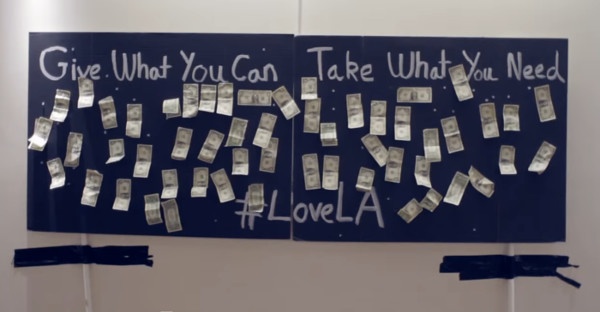 Give What You Can Take What You Need
#LoveLA